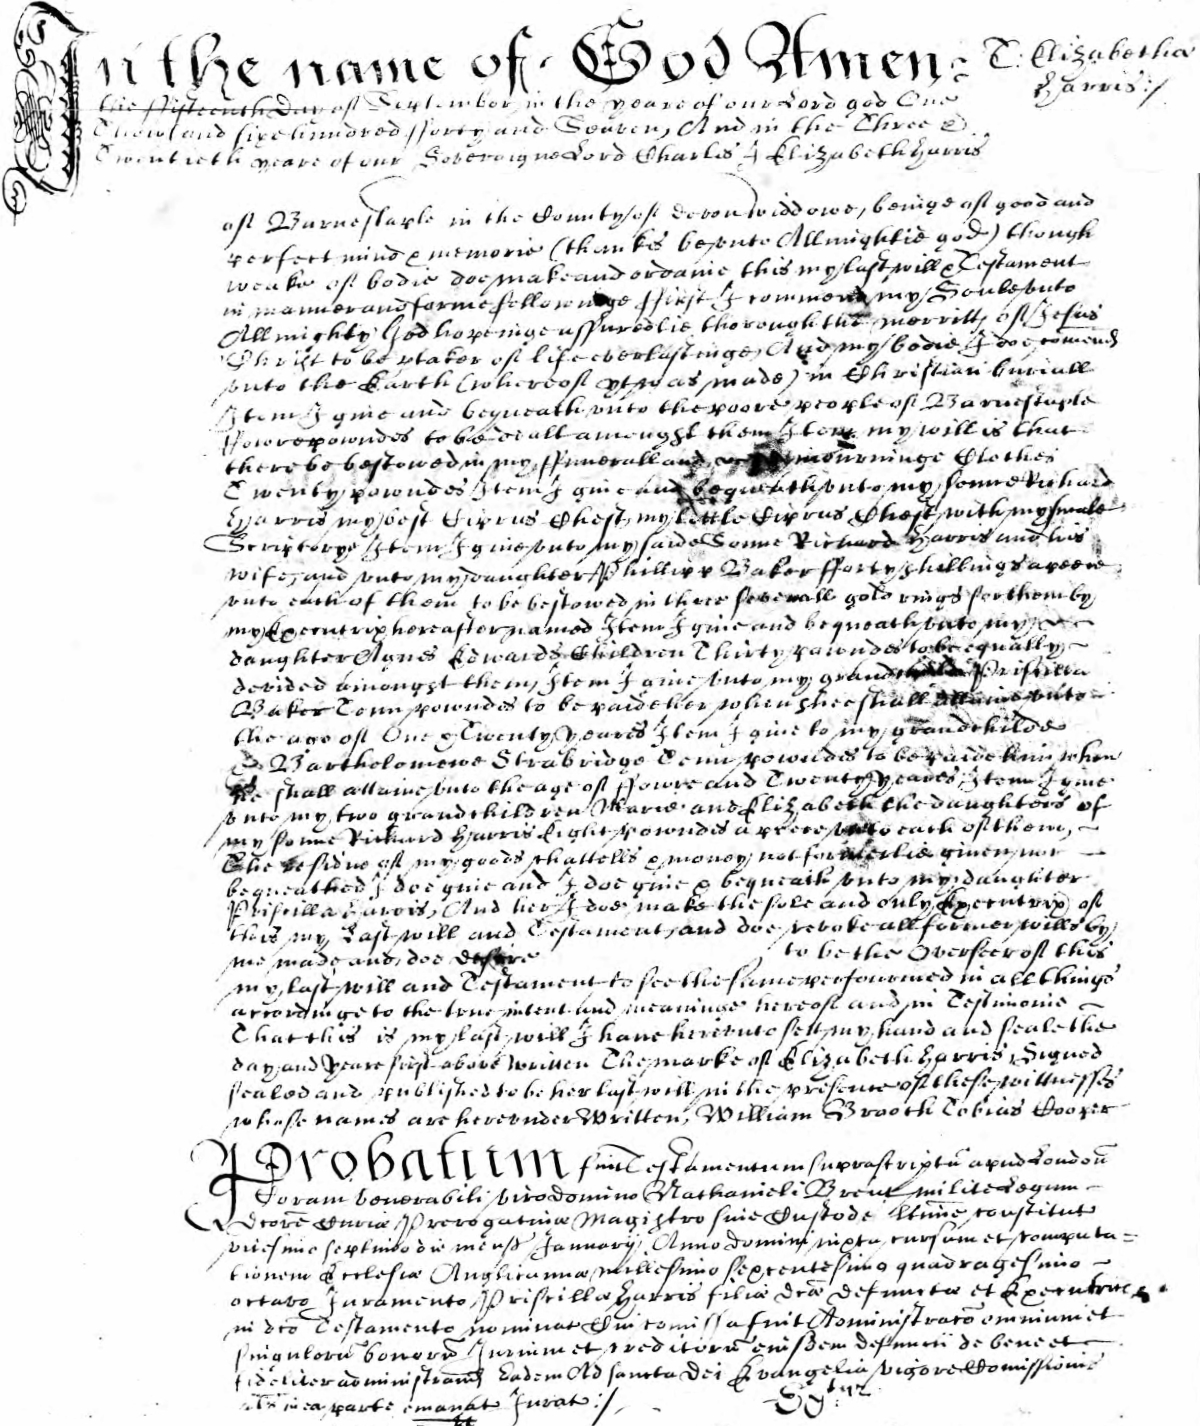 In the name of God Amen: T: Elizabethæ
Harris:/
the fifteenth Day of September in the yeare of our Lord god One
Thowsand sixe hundred fforty and Seaven, And in the Three &
Twentieth yeare of our Soveraigne Lord Charles I Elizabeth Harris
of Barnestaple in the County of devon widdowe, beinge of good and
perfect mind & memorie (thankes be vnto Allmightie god) though
weake of bodie doe make and ordaine this my last will & Testament
in manner and forme followinge ffirst I commend my Soule vnto
Allmighty God hopeinge assuredlie thorough the merritts of Jesus
Christ to be ptaker of life everlastinge, And my bodie I doe comend
vnto the Earth (whereof yt was made) in Christian buriall
Item I giue and bequeath vnto the poore people of Barnestaple
ffowre powndes to be dealt amongst them Item my will is that
there be bestowed in my ffunerall and mourninge Clothes
Twenty powndes Item I giue and bequeath vnto my sonne Richard
Harris my best Ciprus Chest, my little Ciprus Chest with my smale
Scriptorye Item I giue vnto my saide Sonne Richard Harris and his
wife, and vnto my daughter Phillipp Baker fforty shillings apeece
vnto each of them to be bestowed in three severall gold rings for them by
my Executrix hereafter named Item I giue and bequeath vnto my
daughter Agnes Edwards Children Thirty powndes to be equally
devided amongst them, Item I giue vnto my grandchilde Priscilla
Baker Tenn powndes to be paide her when shee shall attaine vnto
the age of One & Twenty yeares Item I giue to my grandchilde
Bartholomewe Strabridge Tenn powndes to be paide him when
he shall attaine vnto the age of ffowre and Twenty yeares, Item I giue
vnto my two grandchildren Marie and Elizabeth the daughters of
my sonne Richard Harris Eight powndes apeece vnto each of them,
The residue of my goods chattells & money not formerlie given nor
bequeathed I doe giue and I doe giue & bequeath vnto my daughter
Priscilla Harris, And her I doe make the sole and only Executrix of
this my Last will and Testament, and doe revoke all former wills by
me made and doe desire to be the Overseer of this
my last will and Testament to see the same perfourmed in all things
accordinge to the true intent and meaninge hereof and in Testimonie
That this is my last will I haue herevnto sett my hand and seale the
day and yeare first above written The marke of Elizabeth Harris, Signed
sealed and published to be her last will in the presence of these wittnesses
whose names are herevnder written, William Brooth Tobias Cooper
Probatum fuit Testamentum suprascriptū apud London
Coram venerabili viro domino Nathanieli Brent milite Legum
dcore Curiæ Prerogativæ Magistro sive Custode ltime constitut
vicesimo septimo die mensis January Anno domini iuxta cursum et computa=
tionem Ecclesiæ Anglicanæ millesimo sexcentesimo quadragesimo
octavo Juramento Priscillæ Harris filiæ dcæ defunctæ et Executrice
in dco Testamento nominat Cui comissa fuit Administraco omnium et
singulorū bonorū Jurium et creditorū eiusdem defuncti de bene et
fideliter administrand Eadem Ad sancta Dei Evangelia vigore Comissionis
als in ea parte emanat Jurat:/